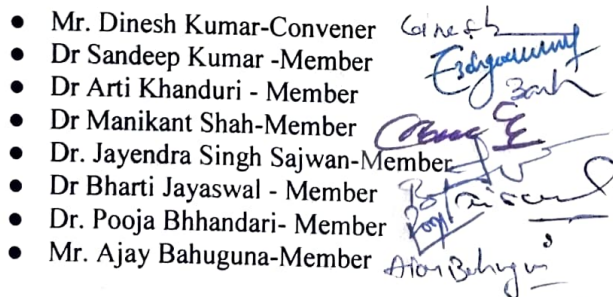 • Mr. Dinesh Kumar-Convener Dinesh
• Dr Sandeep Kumar -Member
• Dr Arti Khanduri - Member
• Dr Manikant Shah-Member
• Dr. Jayendra Singh Sajwan-Member
• Dr Bharti Jayaswal - Member
• Dr. Pooja Bhhandari- Member
• Mr. Ajay Bahuguna-Member